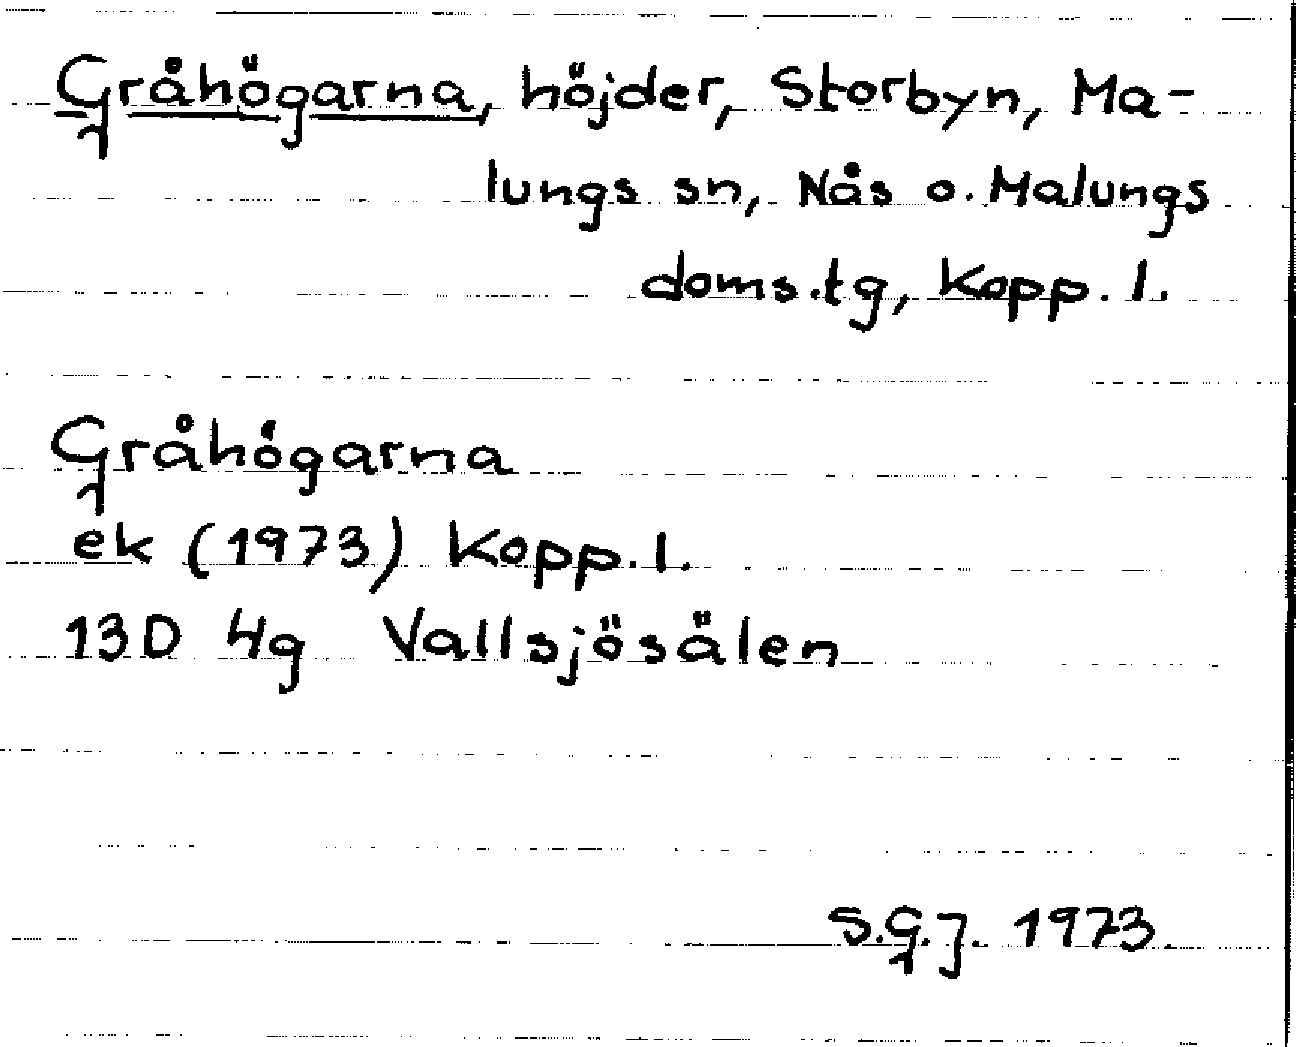 Gråhögarna, höjder, Storbyn, Ma-
lungs sn, Nås o. Malungs
doms.tg, Kopp. l.
Gråhögarna
ek (1973) Kopp. l.
13D 4g Vallsjösälen
S.G.J. 1973.